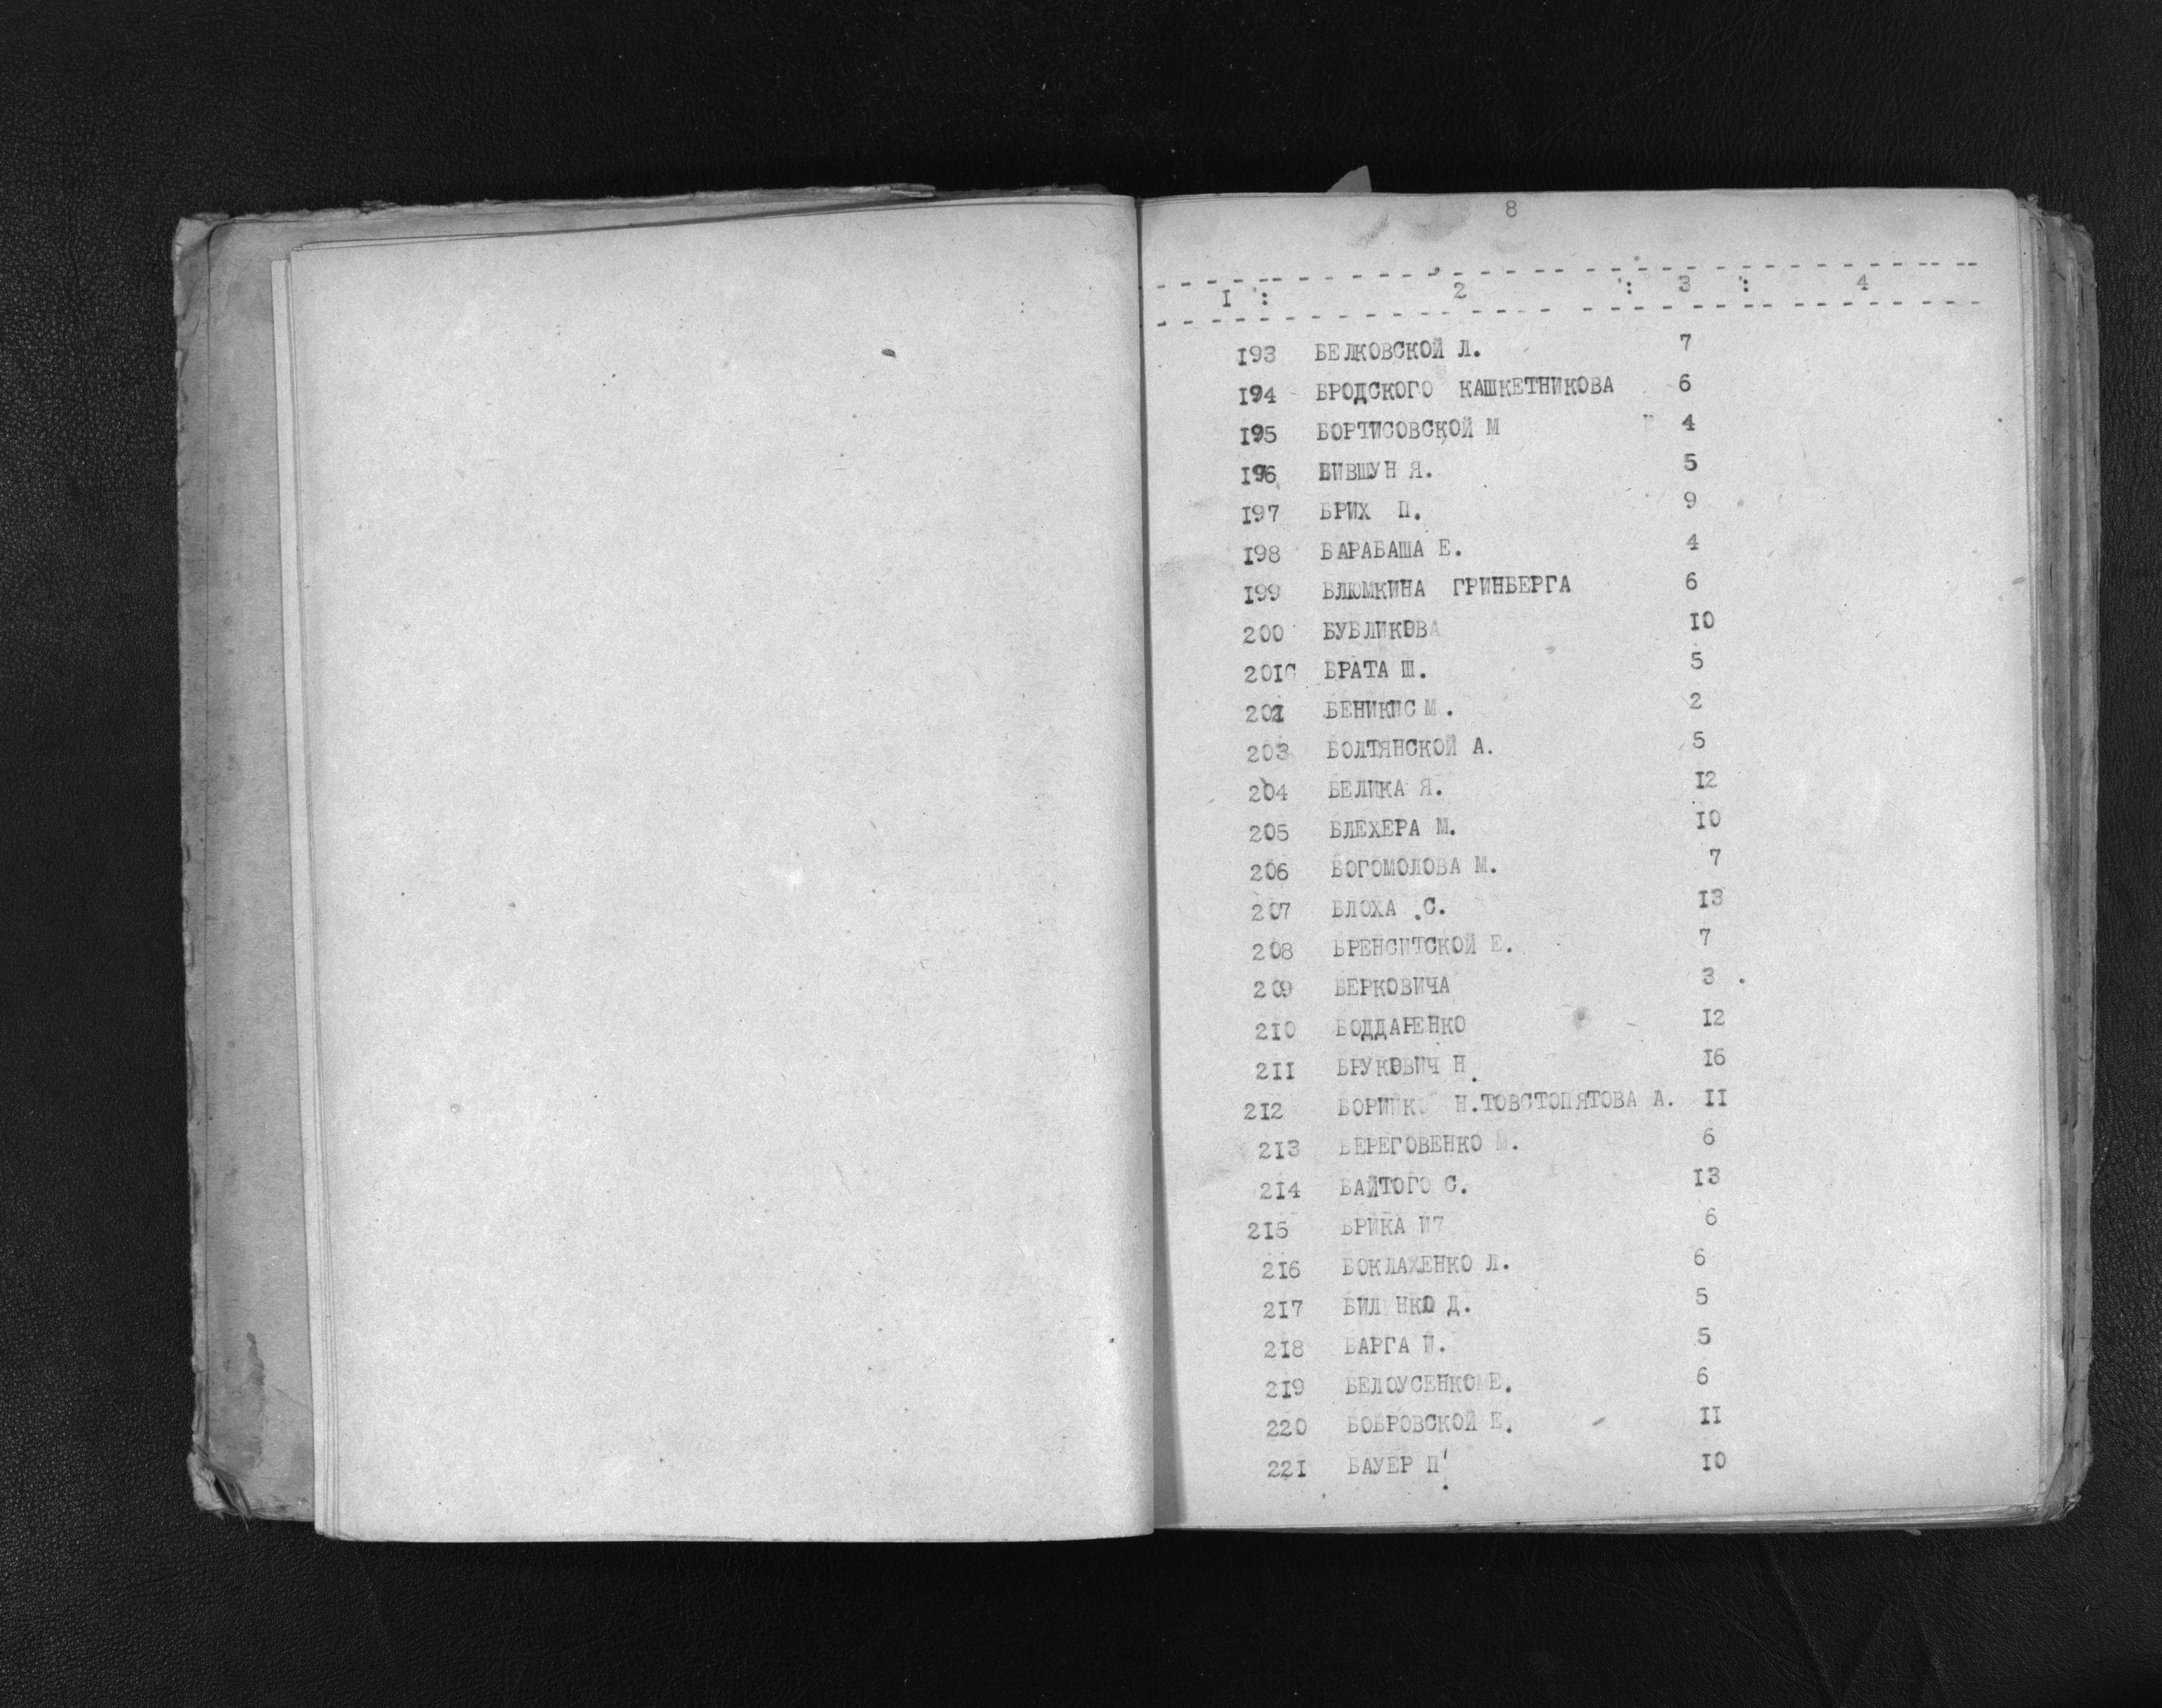 8
I : 2 : 3 : 4
193 БЕЛКОВСКОЙ Л. 7
194 БРОДСКОГО КАШКЕТНИКОВА 6
195 БОРТИСОВСКОЙ М 4
196 БИВШУН Я. 5
197 БРИХ П. 9
198 БАРАБАША Е. 4
199 БЛЮМКИНА ГРИНБЕРГА 6
200 БУБЛИКОВА 10
201 БРАТА Ш. 5
202 БЕНИКИС М. 2
203 БОЛТЯНСКОЙ А. 5
204 БЕЛИКА Я. 12
205 БЛЕХЕРА М. 10
206 БОГОМОЛОВА М. 7
207 БЛОХА .С. 13
208 БРЕНСИТСКОЙ Е. 7
209 БЕРКОВИЧА 3
210 БОДДАРЕНКО 12
211 БРУКОВИЧ Н. 16
212 Н.ТОВСТОПЯТОВА А. 11
213 БЕРЕГОВЕНКО 6
214 БАЙТОГО С. 13
215 БРИКА И7 6
216 БОКЛАХЕНКО Л. 6
217 Д. 5
218 БАРГА Й. 5
219 БЕЛОУСЕНКО Е. 6
220 БОБРОВСКОЙ Е. 11
221 БАУЕР П. 10